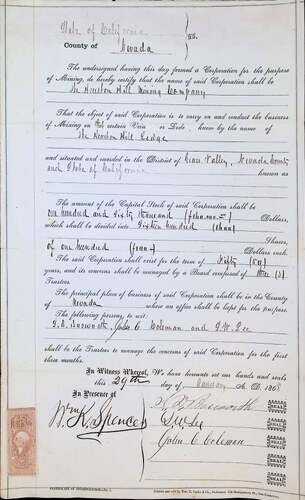 State of California
County of Nevada } SS.
The undersigned having this day formed a Corporation for the purpose
of Mining, do hereby certify that the name of said Corporation shall be
The Houston Hill Mining Company
That the object of said Corporation is to carry on and conduct the business
of Mining on that certain Vein or Lode, known by the name of
The Houston Hill Ledge
and situated and recorded in the District of Grass Valley, Nevada County
and State of California known as
The amount of the Capital Stock of said Corporation shall be
One Hundred and Sixty thousand Dollars,
which shall be divided into Sixteen Hundred (1600) Shares,
of One Hundred Dollars each.
The said Corporation shall exist for the term of Fifty (50)
years, and its concerns shall be managed by a Board composed of three (3)
Trustees.
The principal place of business of said Corporation shall be in the County
of Nevada where an office shall be kept for the purpose.
The following persons, to wit:
John C. Coleman and
shall be the Trustees to manage the concerns of said Corporation for the first
three months.
In Witness Whereof, We have hereunto set our hands and seals
this 29th day of January A. D. 186
In Presence of
Wm K. Spencer
SEAL
SEAL
John C Coleman SEAL
SEAL
SEAL